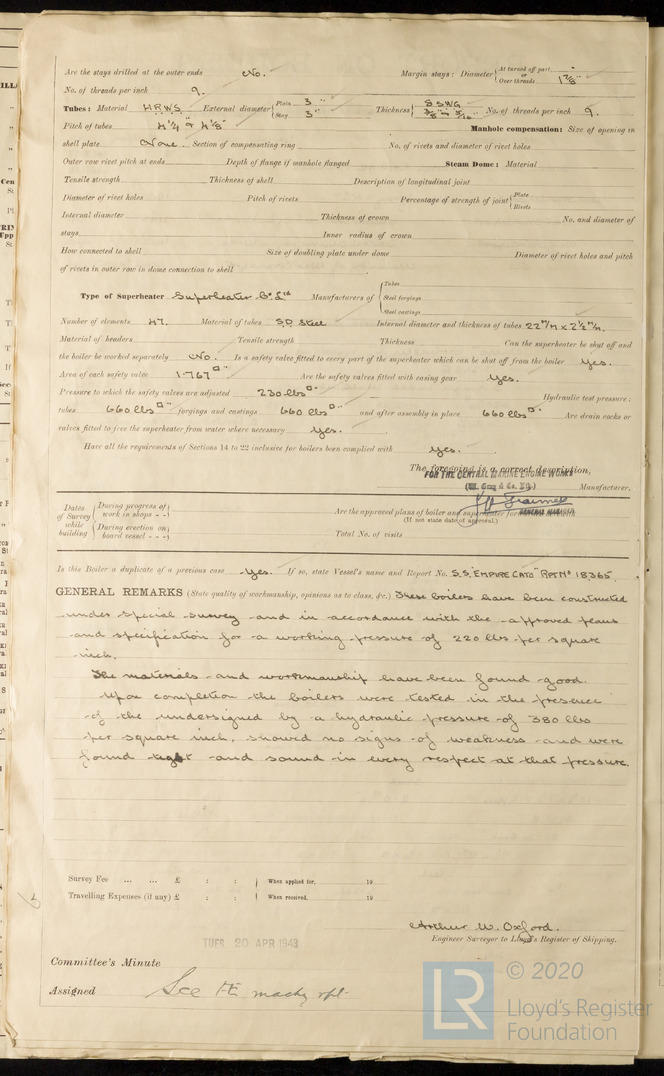 Are the stays drilled at the outer ends No. Margin stays: Diameter { At turned off part, - or Over threads 1 7/8"
No. of threads per inch 9.
Tubes: Material H.R.W.S External diameter { Plain 3" Stay 3" Thickness { 8 SWG 3/8" & 5/16" No. of threads per inch 9.
Pitch of tubes 4 1/4" & 4 1/8" Manhole compensation: Size of opening in
shell plate None. Section of compensating ring No. of rivets and diameter of rivet holes
Outer row rivet pitch at ends Depth of flange if manhole flanged Steam Dome: Material
Tensile strength Thickness of shell Description of longitudinal joint
Diameter of rivet holes Pitch of rivets Percentage of strength of joint { Plate Rivets
Internal diameter Thickness of crown No. and diameter of
stays Inner radius of crown
How connected to shell Size of doubling plate under dome Diameter of rivet holes and pitch
of rivets in outer row in dome connection to shell
Type of Superheater Superheater Co. Ltd Manufacturers of { Tubes Steel forgings Steel castings
Number of elements 47. Material of tubes S.D Steel Internal diameter and thickness of tubes 22 m/m x 2 1/2 m/m.
Material of headers Tensile strength Thickness Can the superheater be shut off and
the boiler be worked separately No. Is a safety valve fitted to every part of the superheater which can be shut off from the boiler Yes.
Area of each safety valve 1.767 □" Are the safety valves fitted with easing gear Yes.
Pressure to which the safety valves are adjusted 230 lbs □". Hydraulic test pressure:
tubes 660 lbs □" forgings and castings 660 lbs □" and after assembly in place 660 lbs □". Are drain cocks or
valves fitted to free the superheater from water where necessary Yes.
Have all the requirements of Sections 14 to 22 inclusive for boilers been complied with Yes.
The foregoing is a correct description,
FOR THE CENTRAL MARINE ENGINE WORKS
(Wm. Gray & Co. LTD.) Manufacturer.
GENERAL MANAGER
Dates of Survey while building { During progress of work in shops - - During erection on board vessel - - - Are the approved plans of boiler and superheater forwarded
(If not state date of approval.)
Total No. of visits
Is this Boiler a duplicate of a previous case Yes. If so, state Vessel's name and Report No. S.S. "EMPIRE CATO" RPT No 18365.
GENERAL REMARKS (State quality of workmanship, opinions as to class, &c.) These boilers have been constructed
under special survey and in accordance with the approved plans
and specification for a working pressure of 220 lbs per square
inch.
The materials and workmanship have been found good.
Upon completion the boilers were tested in the presence
of the undersigned by a hydraulic pressure of 380 lbs
per square inch, showed no signs of weakness and were
found tight and sound in every respect at that pressure.
Survey Fee ... ... £ : : When applied for, 19
Travelling Expenses (if any) £ : : When received, 19
Arthur W. Oxford.
Engineer Surveyor to Lloyd's Register of Shipping.
TUES 20 APR 1943
Committee's Minute
Assigned See FE machy rpt.
© 2020
LR
Lloyd's Register
Foundation